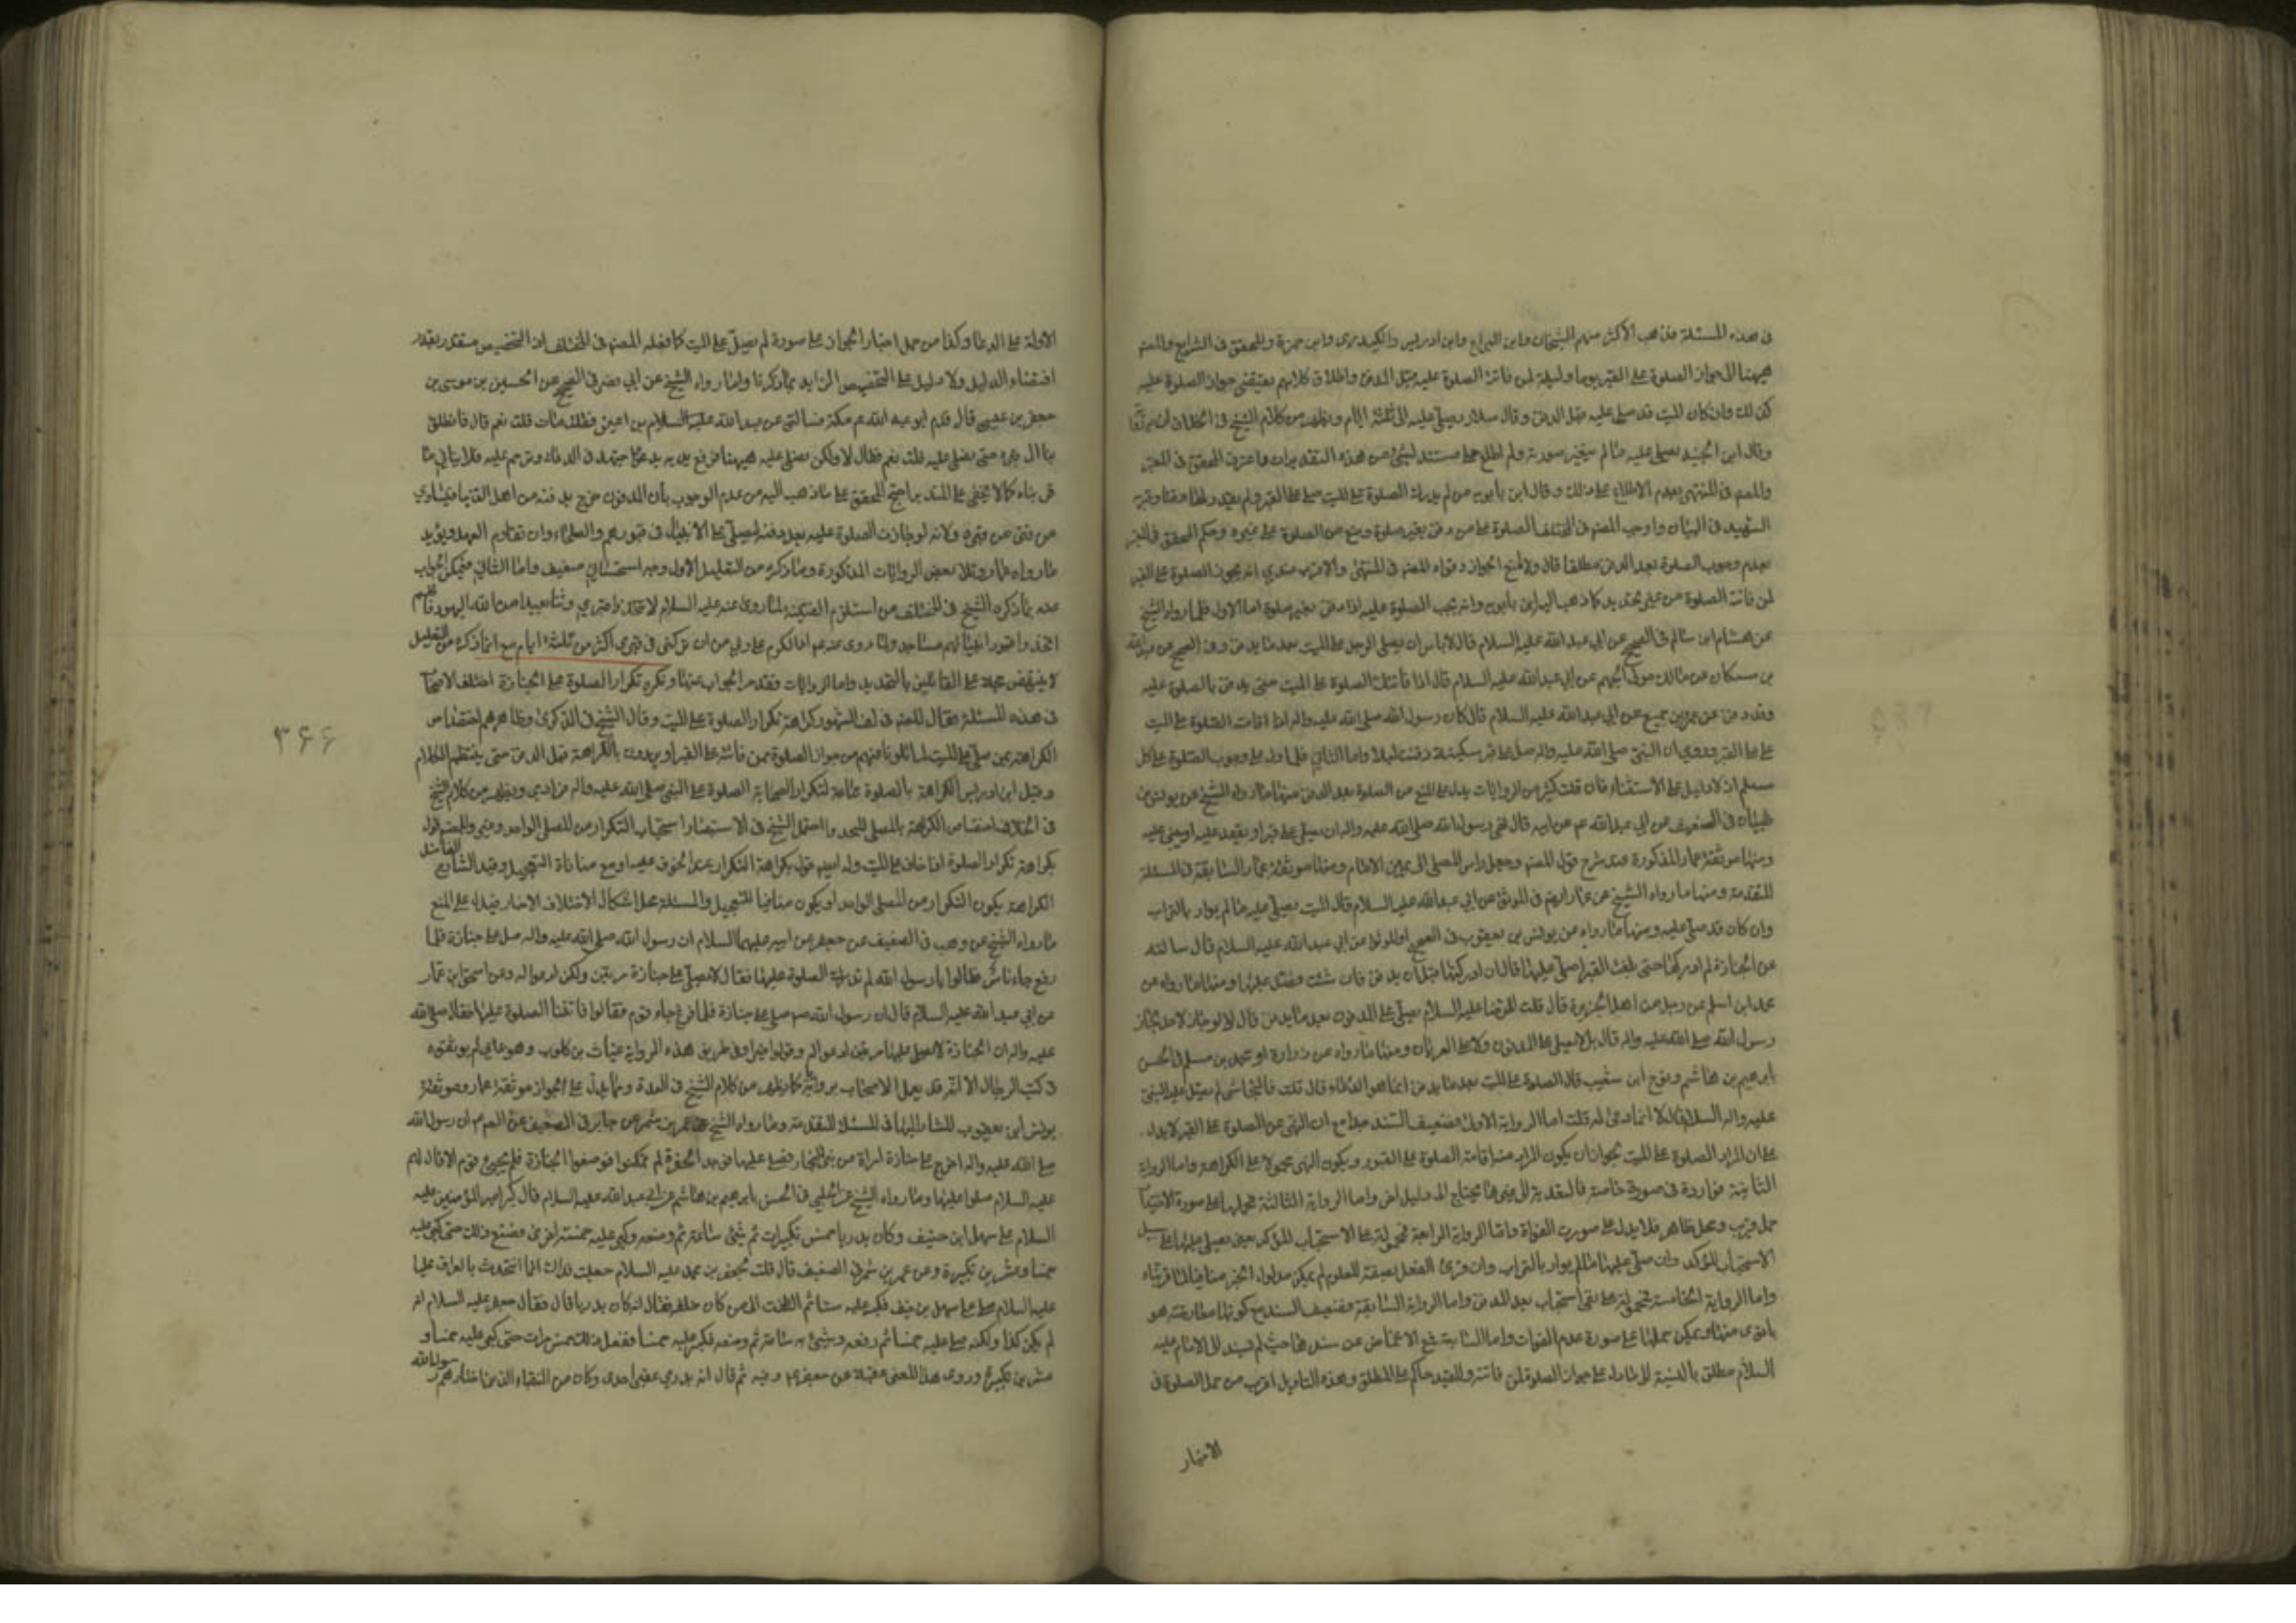 في هذه المسئلة فذهب الاكثر منهم الشيخان وابن البراج وابن ادريس والكيدرى وابن حمزة والمحقق في الشرايع والمصنف
ههنا الى جواز الصلوة على القبر يوما وليلة لمن فاتته الصلوة عليه قبل الدفن واطلاق كلامهم يقتضى جواز الصلوة عليه
كذلك وان كان الميت قد صلى عليه قبل الدفن وقال سلار يصلى عليه الى ثلثة ايام ويظهر من كلام الشيخ في الخلاف
وقال ابن الجنيد يصلى عليه ما لم يتغير صورته ولم اطلع على مستند لشئ من هذه التقديرات واعترف المحقق في المعتبر
والمصنف في المنتهى بعدم الاطلاع على ذلك وقال ابن بابويه من لم يدرك الصلوة على الميت صلى على القبر ولم يقدر لها وقتا وقربه
الشهيد في البيان واوجب المصنف في المختلف الصلوة على من دفن بغير صلوة ومنع من الصلوة على غيره وحكم المحقق في المعتبر
بعدم وجوب الصلوة بعد الدفن مطلقا قال ولا امنع الجواز وقواه المصنف في المنتهى والاقرب عندي انه يجوز الصلوة على القبر
لمن فاتته الصلوة من غير تحديد كما ذهب اليه ابن بابويه وانه يجب الصلوة عليه اذا دفن بغير صلوة اما الاول فلما رواه الشيخ
عن هشام ابن سالم في الصحيح عن ابي عبد الله عليه السلام قال لا باس ان يصلى الرجل على الميت بعد ما يدفن وفي الصحيح عن عبدالله
بن مسكان عن مالك مولى الجهم عن ابي عبد الله عليه السلام قال اذا فاتتك الصلوة على الميت حتى يدفن فلا باس بالصلوة عليه
وقد دفن عن عمرو بن جميع عن ابي عبد الله عليه السلام قال كان رسول الله صلى الله عليه واله اذا فاتت الصلوة على الميت
صلى على القبر وروى ان النبي صلى الله عليه واله صلى على قبر مسكينة دفنت ليلا واما الثاني فلما دل على وجوب الصلوة على كل
مسلم اذ لا دليل على الاستثناء فان قلت كثير من الروايات يدل على المنع من الصلوة بعد الدفن منها ما رواه الشيخ عن يونس بن
ظبيان في الضعيف عن ابي عبد الله عم عن ابيه قال نهى رسول الله صلى الله عليه واله ان يصلى على قبر او يقعد عليه او يبنى عليه
ومنها موثقة عمار المذكورة عند شرح قول المصنف وجعل راس المصلى الى يمين الامام ومنها موثقة عمار السابقة في المسئلة
المتقدمة ومنها ما رواه الشيخ عن عمار ايضا في الموثق عن ابي عبد الله عليه السلام قال الميت يصلى عليه ما لم يوار بالتراب
وان كان قد صلى عليه ومنها ما رواه عن يونس بن يعقوب في الصحيح او الموثق عن ابي عبد الله عليه السلام قال سالته
عن الجنازة لم ادركها حتى بلغت القبر اصلى عليها قال ان ادركتها قبل ان يدفن فان شئت فصل عليها ومنها ما رواه عن
محمد ابن اسلم عن رجل من اهل الجزيرة قال قلت للرضا عليه السلام يصلى على المدفون بعد ما يدفن قال لا لو جاز لاحد لجاز
رسول الله صلى الله عليه واله قال بل لا يصلى على المدفون ولا على العريان ومنها ما رواه عن زرارة او محمد بن مسلم في الحسن
بابرهيم بن هاشم ونوح ابن شعيب قال الصلوة على الميت بعد ما يدفن انما هو الدعاء قال قلت فالنجاشي لم يصل عليه النبي
عليه واله السلام فقال لا انما دعى له قلت اما الرواية الاولى فضعيف السند جدا مع ان النهى عن الصلوة على القبر لا يدل
على ان المراد الصلوة على الميت لجواز ان يكون المراد منه اقامة الصلوة على القبور ويكون النهى محمولا على الكراهة واما الرواية
الثانية فواردة في صورة خاصة فالتعدية الى غيرها يحتاج الى دليل اخر واما الرواية الثالثة فحملها على صورة
حمل قريب ومحمل ظاهر فلا يدل على صورت الفوات واما الرواية الرابعة فمحمولة على الاستحباب المؤكد يعنى يصلى عليها على سبيل
الاستحباب المؤكد وان صلى عليها ما لم يوار بالتراب وان قرئ الفعل بصيغة المعلوم لم يكن مدلول الخبر منافيا لما قربناه
واما الرواية الخامسة فمحمولة على نفى استحباب بعد الدفن واما الرواية السابقة فضعيف السند مع كونها معارضة بما هو
اقوى منها ويمكن حملها على صورة عدم الفوات واما السابعة فمع الاغماض عن سندها حيث لم يسند الى الامام عليه
السلام مطلق بالنسبة الى ما دل على جواز الصلوة لمن فاتته والمقيد حاكم على المطلق وهذه التاويل اقرب من حمل الصلوة في
الاخبار
الاولة على الدعا وكذا من حمل اخبار الجواز على صورة لم يصل على الميت كما فعله المصنف في المختلف اذ التخصيص مقدر بقدر
اقتضاء الدليل ولا دليل على التخصيص الزايد بما ذكرنا واما ما رواه الشيخ عن ابي نصر في الصحيح عن الحسين بن موسى بن
جعفر بن عيسى قال قدم ابو عبد الله عم مكة فسالني عن عبد الله بن اعين فقلت مات قلت نعم قال فانطلق
بنا الى قبره حتى نصلى عليه قلت نعم فقال لا ولكن نصلى عليه ههنا فرفع يديه يدعو واجتهد في الدعاء وترحم عليه فلا ينافي ما
قربناه كما لا يخفى على المتدبر احتج المحقق على ما ذهب اليه من عدم الوجوب بان المدفون خرج بدفنه من اهل الدنيا فيساوى
من فنى في قبره ولانه لو جازت الصلوة عليه بعد دفنه لصلى على الانبياء في قبورهم والصلحاء وان تقادم العهد ويؤيد
ما رواه عمار وتلك بعض الروايات المذكورة وما ذكره من التعليل الاول وجه استحساني ضعيف واما الثاني فيمكن الجواب
عنه بما ذكره الشيخ في المختلف من استلزم الفتنة لما روى عنه عليه السلام لا تتخذوا قبري وثنا يعبد لعن الله اليهود فانهم
اتخذوا قبور انبيائهم مساجد ولما روى عنه عم انا اكرم على ربي من ان يتركنى في قبرى اكثر من ثلثة ايام مع ان ما ذكره من التعليل
لا ينهض حجة على القائلين بالتحديد واما الروايات فقد مر الجواب عنها ويكره تكرار الصلوة على الجنازة اختلف الاصحاب
في هذه المسئلة فقال المصنف في لف المشهور كراهة تكرار الصلوة على الميت وقال الشيخ في الذكرى وظاهرهم اختصاص
الكراهة بمن صلى على الميت لما تلونا منهم من جواز الصلوة ممن فاتته على القبر او يريدون بالكراهة قبل الدفن حتى ينتظم الكلام
وقيل ابن ادريس الكراهة بالصلوة جماعة لتكرار الصحابة الصلوة على النبي صلى الله عليه واله فرادى ويظهر من كلام الشيخ
في الخلاف اختصاص الكراهة بالمصلى المتحد واحتمل الشيخ في الاستبصار استحباب التكرار من المصلى الواحد وغيره وللمصنف قول
بكراهة تكرار الصلوة اذا خاف على الميت وله ايضا قول بكراهة التكرار عند الخوف عليه او مع منافاة التعجيل وقيد الشارع الفاضل
الكراهة بكون التكرار من المصلى الواحد او يكون منافيا للتعجيل والمسئلة محل اشكال لاختلاف الاخبار فيدل على المنع
ما رواه الشيخ عن وهب في الضعيف عن جعفر عن ابيه عليهما السلام ان رسول الله صلى الله عليه واله صلى على جنازة فلما
فرغ جاء ناس فقالوا يا رسول الله لم ندرك الصلوة عليها فقال لا يصلى على جنازة مرتين ولكن ادعوا له وعن اسحق ابن عمار
عن ابي عبد الله عليه السلام قال ان رسول الله صم صلى على جنازة فلما فرغ جاء قوم فقالوا فاتتنا الصلوة عليها فقال صلى الله
عليه واله ان الجنازة لا يصلى عليها مرتين ادعوا له وقولوا خيرا وفي طريق هذه الرواية غياث بن كلوب وهو عامي لم يوثقوه
في كتب الرجال الا انه قد يعمل الاصحاب بروايته كما يظهر من كلام الشيخ في العدة ومما يدل على الجواز موثقة عمار وموثقة
يونس ابن يعقوب المشار اليها في المسئلة المتقدمة وما رواه الشيخ عن عمرو بن شمر عن جابر في الضعيف عن ابي جعفر عم ان رسول الله
صلى الله عليه واله خرج على جنازة امراة من بني النجار فصلى عليها فوجد الحفرة لم يمكنوا فوضعوا الجنازة فلم يجئ قوم الا قال لهم
عليه السلام صلوا عليها وما رواه الشيخ عن الحلبي في الحسن بابرهيم بن هاشم عن ابي عبد الله عليه السلام قال كبر امير المؤمنين عليه
السلام على سهل ابن حنيف وكان بدريا خمس تكبيرات ثم مشى ساعة ثم وضعه وكبر عليه خمسة اخرى فصنع ذلك حتى كبر عليه
خمسا وعشرين تكبيرة وعن عمرو بن شمر في الضعيف قال قلت لجعفر بن محمد عليه السلام جعلت فداك انا نتحدث بالعراق ان عليا
عليه السلام صلى على سهل بن حنيف فكبر عليه ستا ثم التفت الى من كان خلفه فقال انه كان بدريا قال فقال جعفر عليه السلام انه
لم يكن كذا ولكنه صلى عليه خمسا ثم رفعه ومشى به ساعة ثم وضعه فكبر عليه خمسا ففعل ذلك خمس مرات حتى كبر عليه خمسا و
عشرين تكبيرة وروى هذا المعنى عقبة عن جعفر عم وفيه ثم قال انه بدري عقبي احدى وكان من النقباء الذين اختارهم رسول الله
۳۶۶